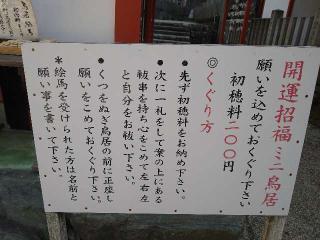 開運招福・ミニ鳥居
願いを込めておくぐり下さい
初穂料二〇〇円
◎くぐり方
●先ず初穂料をお納め下さい。
●次に一礼をして案の上にある
祓串を持ち心をこめて左右左
と自分をお祓い下さい。
●くつをぬぎ鳥居の前に正座し
願いをこめておくぐり下さい。
＊絵馬を受けられた方は名前と
願い事を書いて下さい。